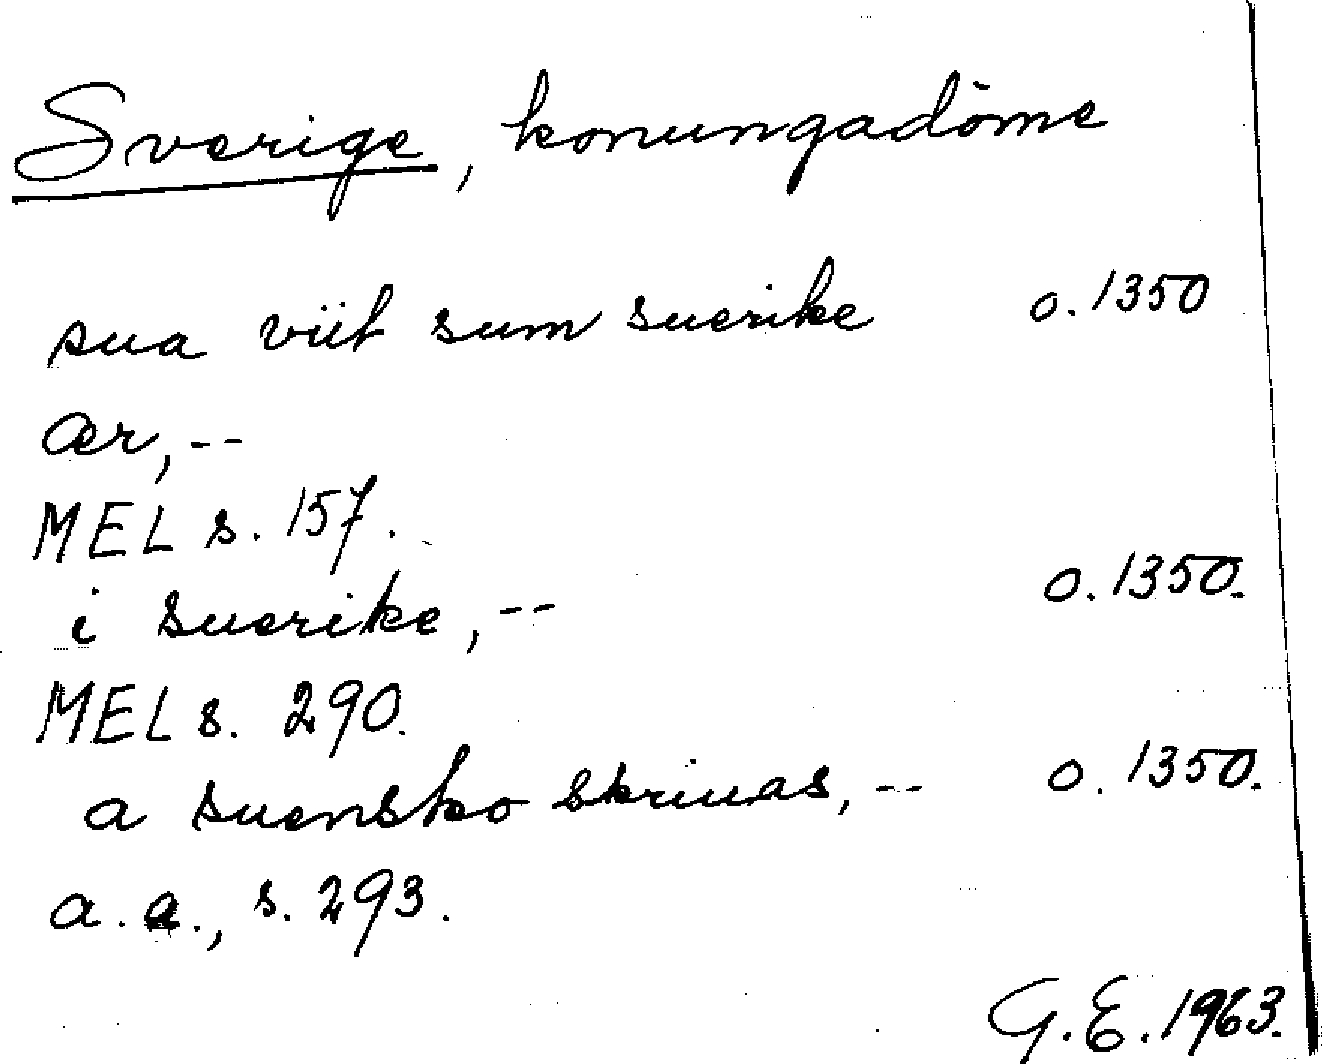 Sverige, konungadöme
sua viit sum suerike o. 1350
ær, --
MEL s. 157.
i suerike, -- o. 1350.
MEL s. 290.
a suensko skriuas, -- o. 1350.
a.a., s. 293.
G.E. 1963.